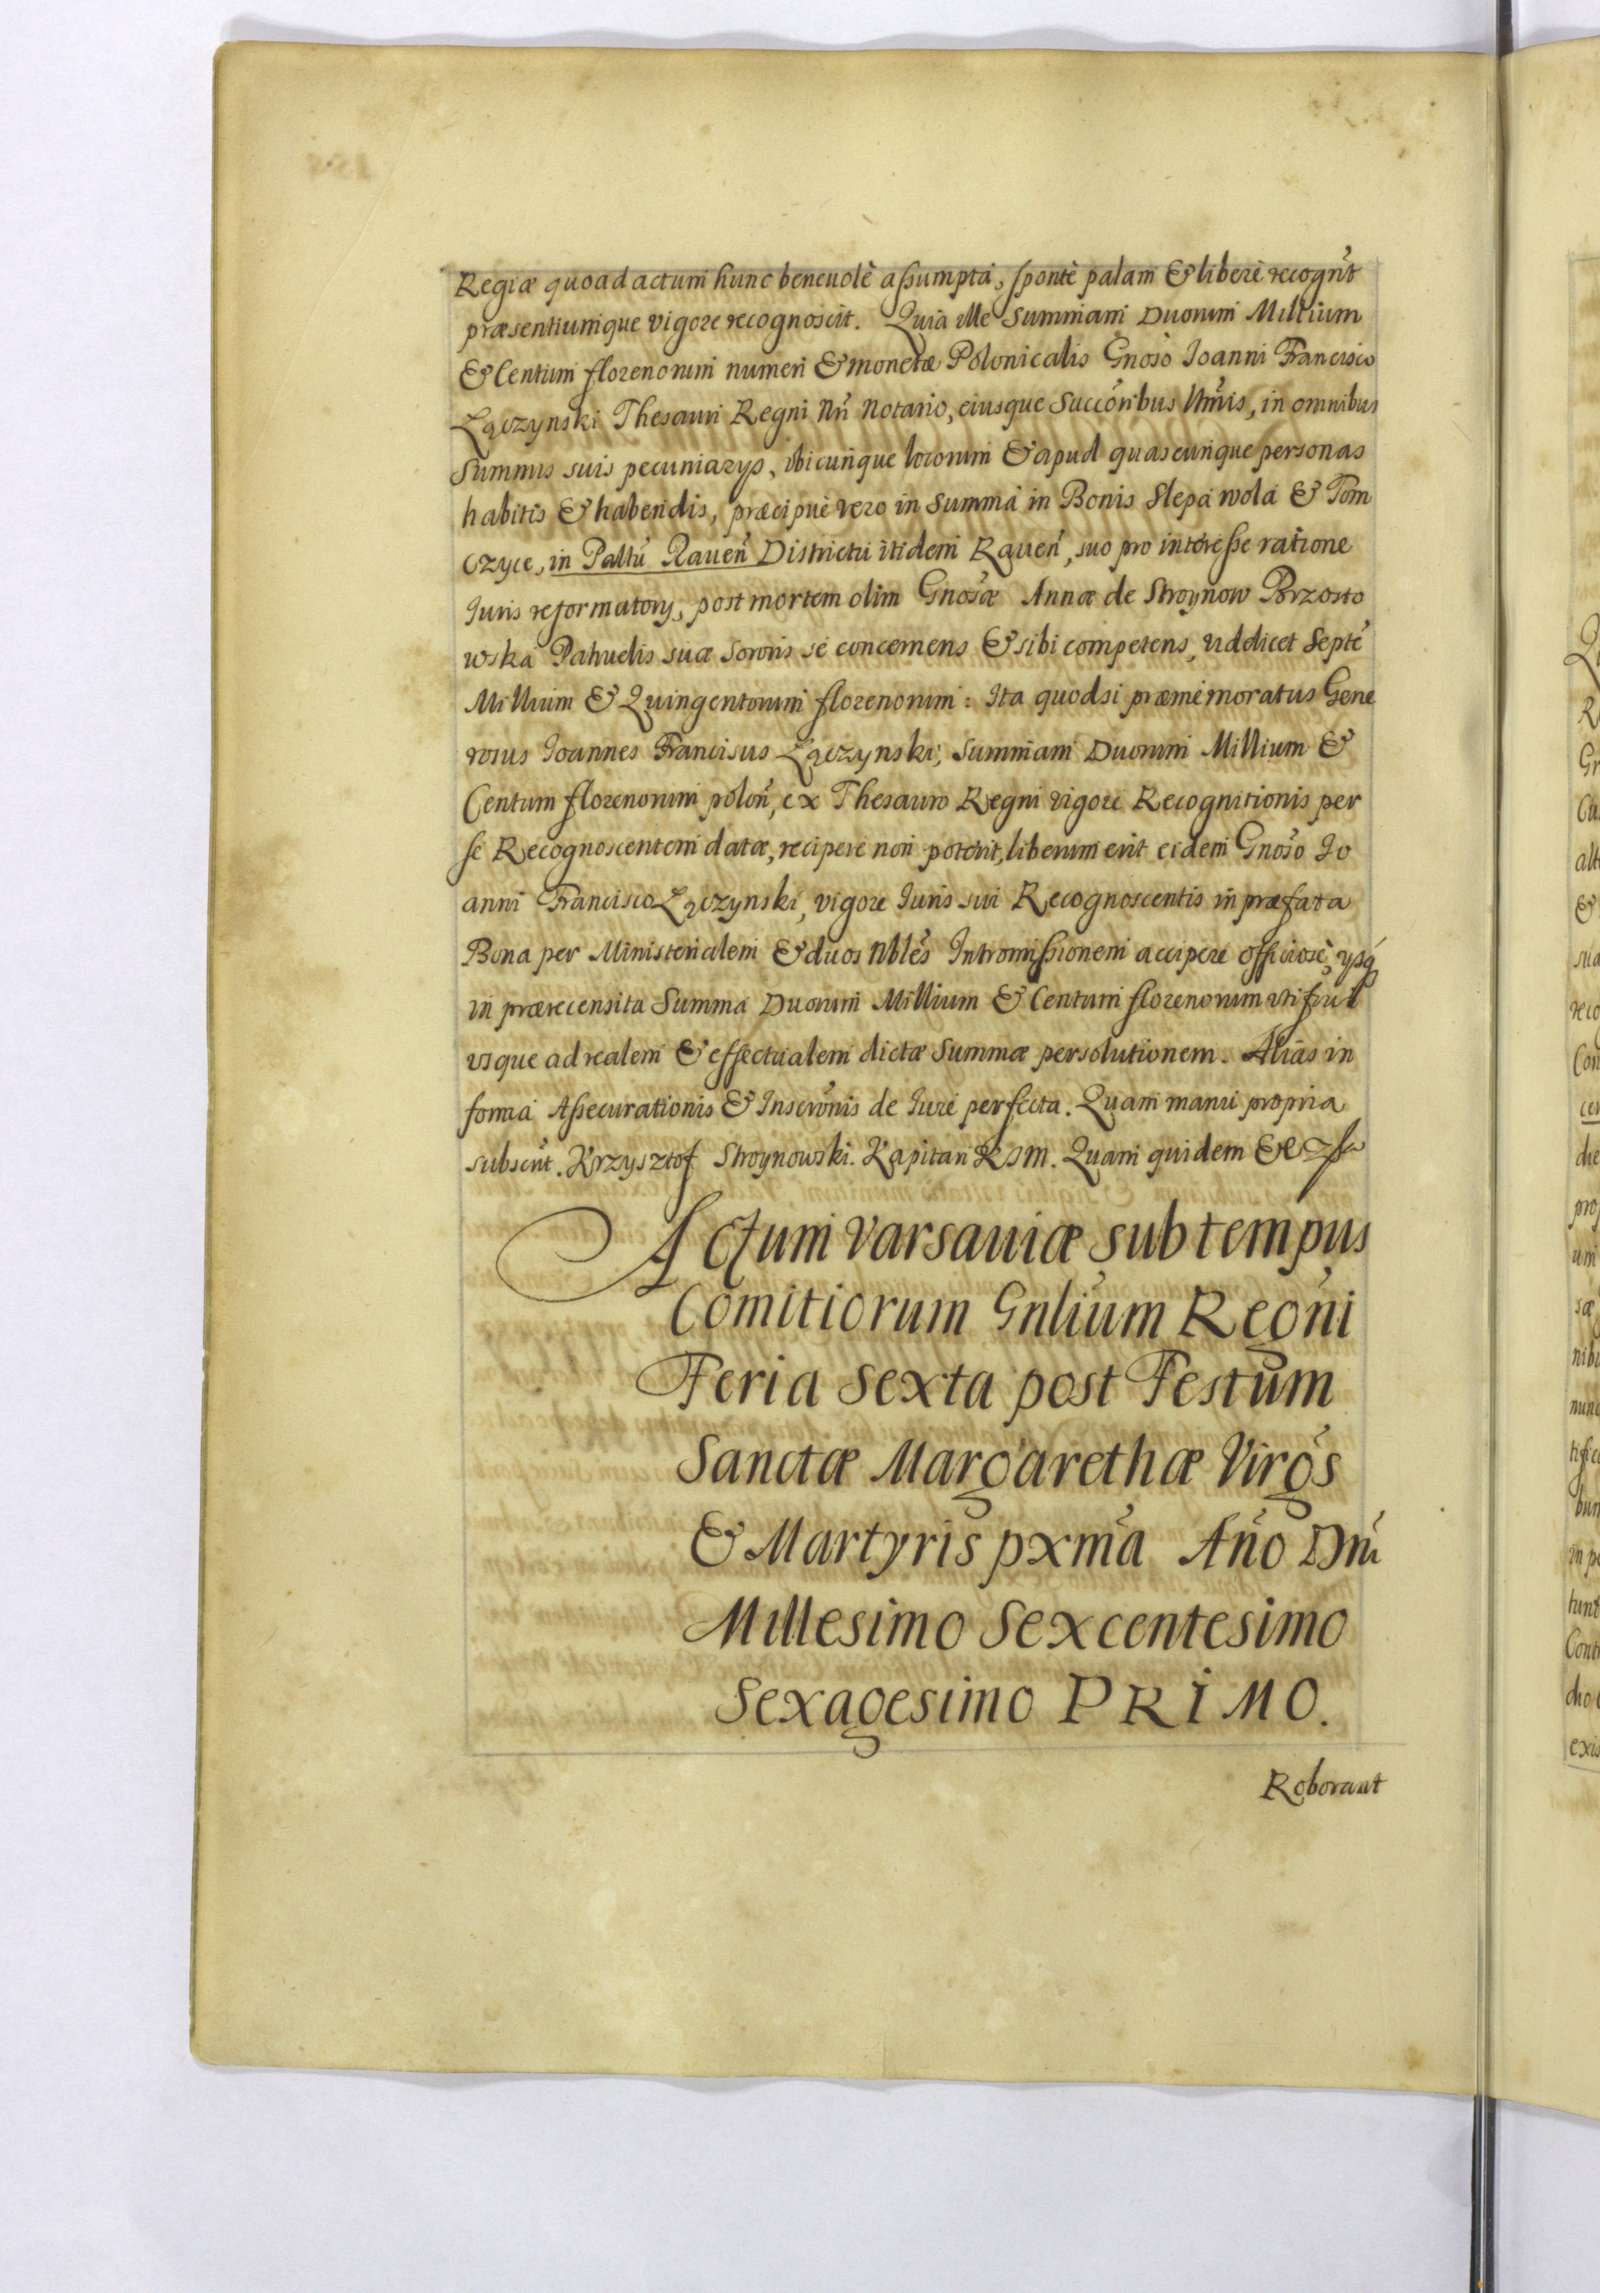 Regiæ quoad actum hunc beneuolè assumptá, spontè palam & liberè recognȗt
præsentiumque vigore recognoscit. Quia ille Summam Duorum Millium
& Centum florenorum numeri & monetæ Polonicalis Gnoso Ioanni Francisco
Łączynski Thesauri Regni Nri Notario, eiusque Succoribus ltmis, in omnibus
Summis suis pecuniarys, vbicunque locorum & apud quascunque personas
habitis & habendis, præcipuè vero in Summá in Bonis Slepá wolá & Tom
czyce, in Paltu Rauen Districtu itidem Rauen, suo pro interesse ratione
Iuris reformatory, post mortem olim Gnosæ Annæ de Stroynow Brzosto
wská Patruelis suæ Sororis se concernens & sibi competens, videlicet Septe
Millium & Quingentorum florenorum: Ita quodsi præmemoratus Gene
rosus Ioannes Franciscus Łączynski, Summam Duorum Millium &
Centum florenorum polon, ex Thesauro Regni vigore Recognitionis per
se Recognoscentem datæ, recipere non poterit, liberum erit eidem Gnoso Io
anni Francisco Łączynski, vigore Iuris sui Recognoscentis in præfata
Bona per Ministerialem & duos Nbles Intromissionem accipere officiosè, ysq
in prærecensita Summa Duorum Millium & Centum florenorum vti frui
vsque ad realem & effectualem dictæ Summæ persolutionem. Alias in
formá Assecurationis & Inscronis de Iure perfecta. Quam manu propria
subscrit. Krzysztof Stroynowski. Kapitan K J M. Quam quidem &c
Actum Varsauiæ sub tempus
Comitiorum Gnlium Regni
Feria Sexta post Festum
Sanctæ Margarethæ Virgs
& Martyris pxma Año Dni
Millesimo Sexcentesimo
Sexagesimo PRIMO.
Roborant